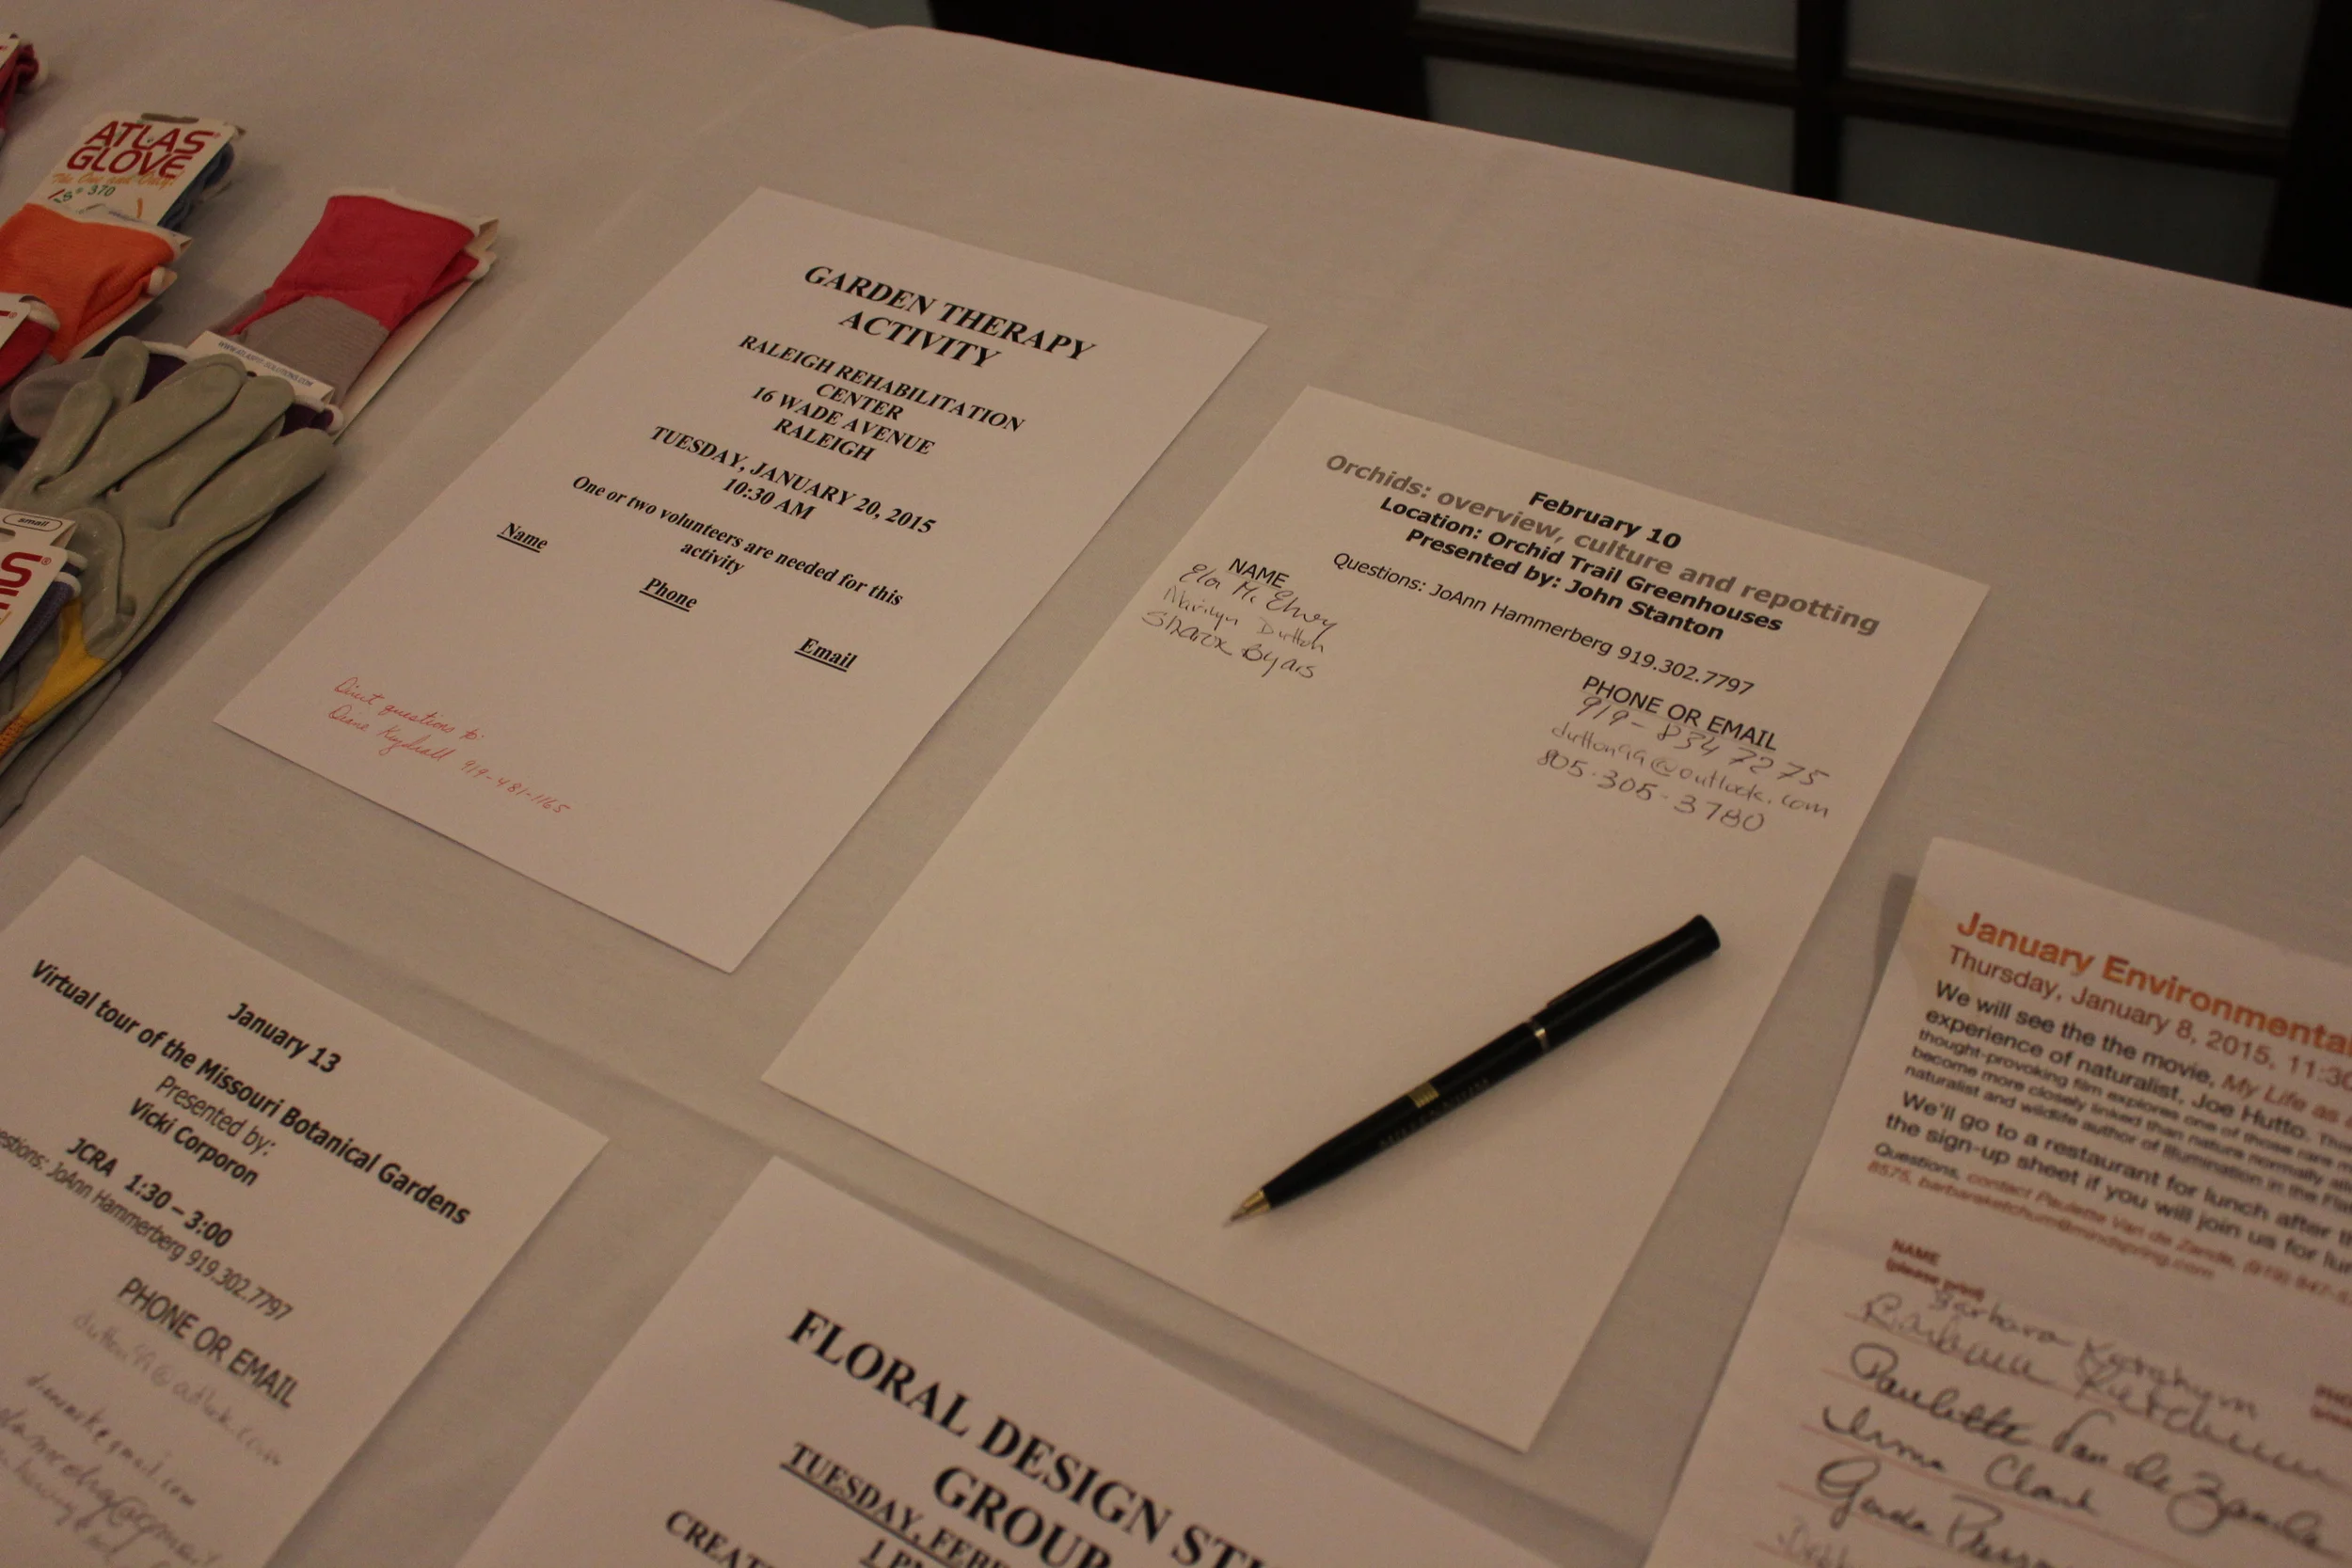 ATLAS
GLOVE
The One and Only!
370
small
GARDEN THERAPY
ACTIVITY
RALEIGH REHABILITATION
CENTER
16 WADE AVENUE
RALEIGH
TUESDAY, JANUARY 20, 2015
10:30 AM
One or two volunteers are needed for this
activity
Name
Phone
Email
Direct questions to:
Diane 919-481-1165
February 10
Orchids: overview, culture and repotting
Location: Orchid Trail Greenhouses
Presented by: John Stanton
Questions: JoAnn Hammerberg 919.302.7797
NAME
PHONE OR EMAIL
919-834 7275
Marilyn Dutton
dutton99@outlook.com
Sharon Byars
805-305-3780
January 13
Virtual tour of the Missouri Botanical Gardens
Presented by:
Vicki Corporon
JCRA 1:30 – 3:00
JoAnn Hammerberg 919.302.7797
PHONE OR EMAIL
FLORAL DESIGN
GROUP
TUESDAY,
January Environmental
Thursday, January 8, 2015, 11:30
We will see the the movie, My Life as
experience of naturalist, Joe Hutto.
thought-provoking film explores one of those rare
become more closely linked than nature normally
naturalist and wildlife author of Illumination in the
We'll go to a restaurant for lunch after
the sign-up sheet if you will join us for
Questions, contact Paulette Van de Zande, (919)
8575, barbaraketchum@mindspring.com
NAME
(please print)
Barbara Ketchum
Barbara Ketchum
Paulette Van de Zande
Irma Clark
Gerda